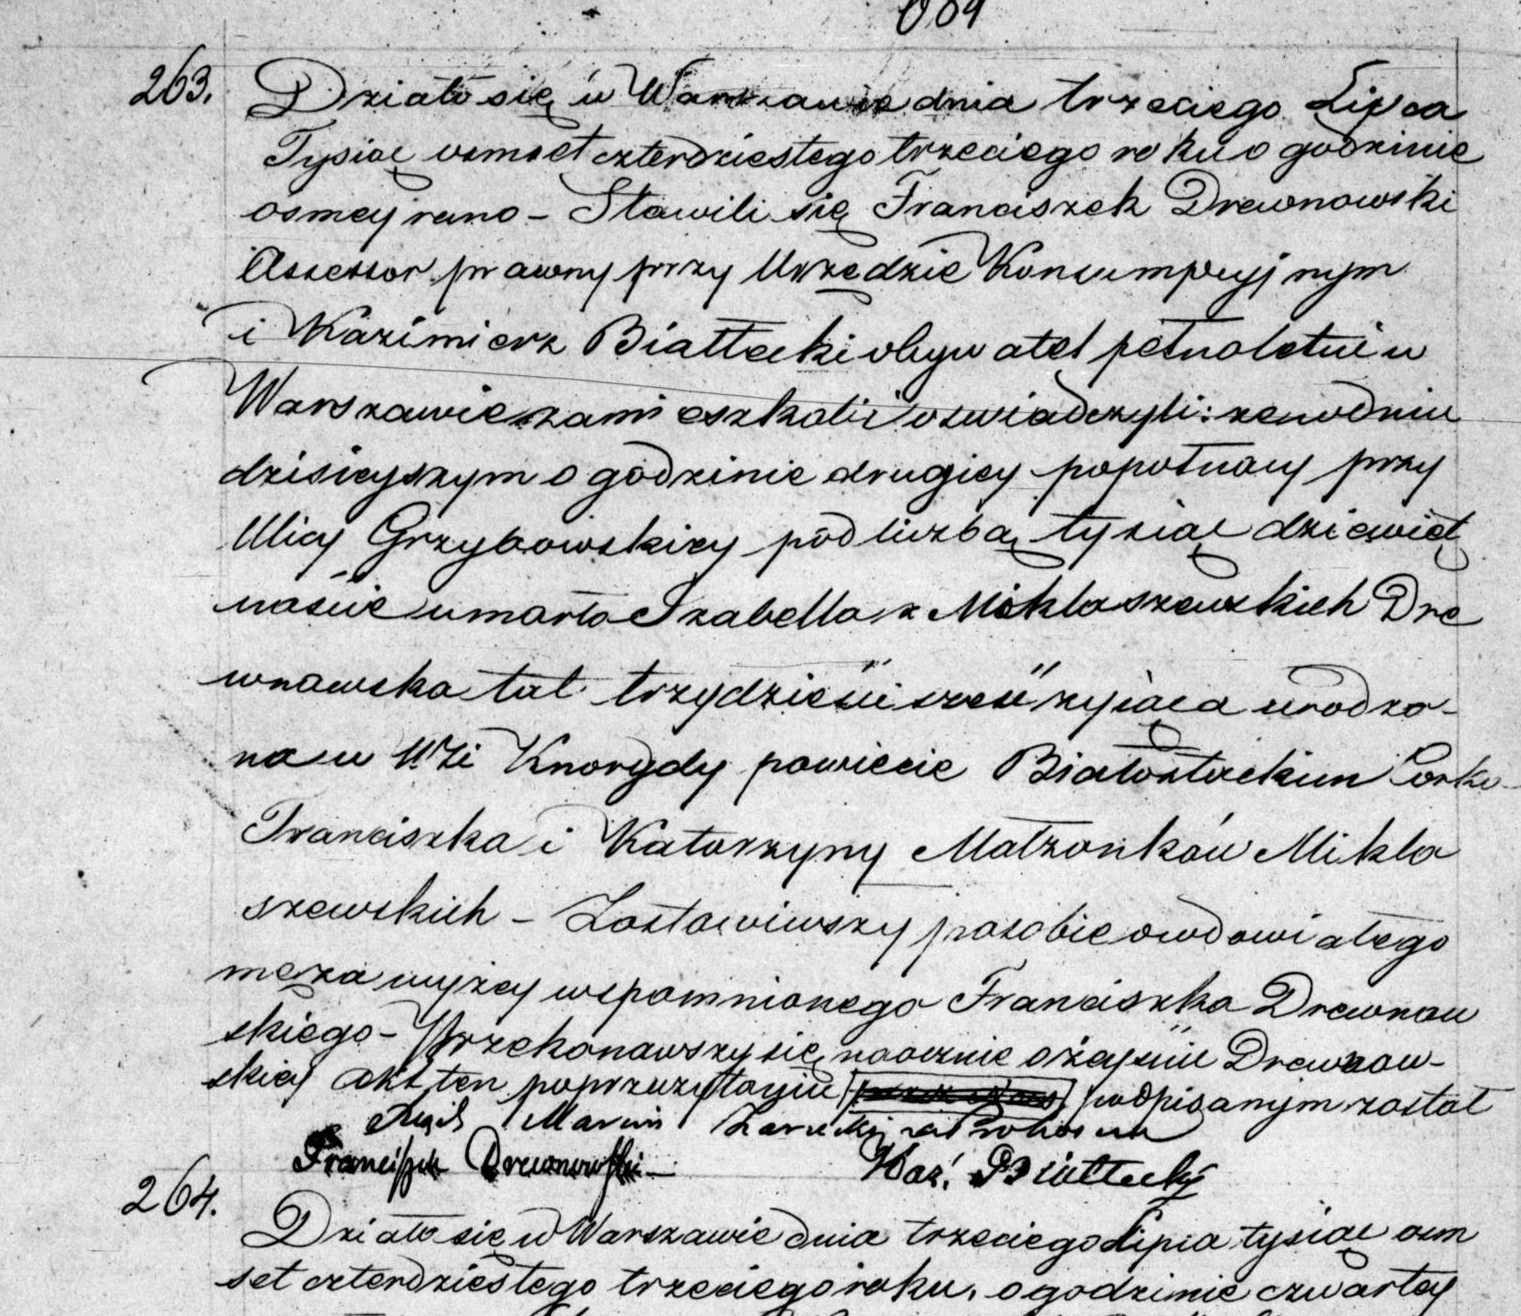 263. Działo się w Warszawie dnia trzeciego Lipca
Tysiąc osmset czterdziestego trzeciego roku o godzinie
osmey rano – Stawili się Franciszek Drewnowski
Assessor prawny przy Urzędzie Konsumpcyjnym
i Kazimierz Białłecki obywatel pełnoletni w
Warszawie zamieszkali i oswiadczyli: że w dniu
dzisieyszym o godzinie drugiey popołnocy przy
Ulicy Grzybowskiey pod liczbą tysiąc dziewięt
naście umarła Izabella z Mikłaszewskich Dre
wnowska lat trzydzieści sześć żyiąca urodzo-
na w Wsi Knorydy powiecie Białostockim Corka
Franciszka i Katarzyny Małżonków Mikła
szewskich – Zostawiwszy po sobie owdowiałego
męża wyżey wspomnionego Franciszka Drewnow
skiego – Przekonawszy się naocznie o zeyściu Drewnow-
skiey akt ten po przeczytaniu podpisanym został
Marcin Zarucki za Proboszcza
Franciszek Drewnowski – Kaz. Białłecki
264. Działo się w Warszawie dnia trzeciego Lipca tysiąc osm
set czterdziestego trzeciego roku, o godzinie czwartey